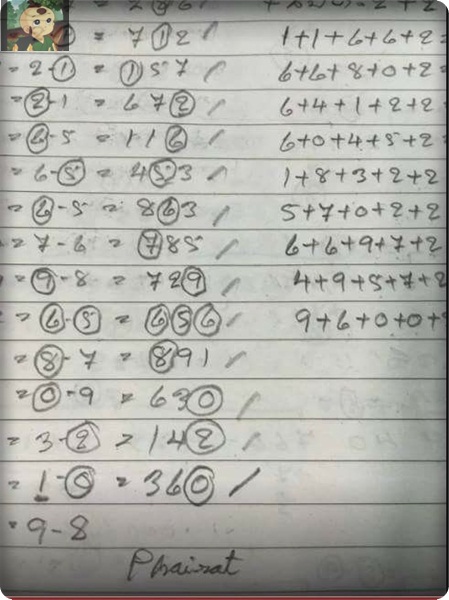 = 7 1 2 / 1+1+6+6+2=
= 2-1 = 1 5 7 / 6+6+8+0+2=
= 2-1 = 6 7 2 / 6+4+1+2+2
= 6-5 = 1 1 6 / 6+0+4+5+2
= 6-5 = 4 5 3 / 1+8+3+2+2
= 6-5 = 8 6 3 / 5+7+0+2+2
= 7-6 = 7 8 5 / 6+6+9+7+2
= 9-8 = 7 2 9 / 4+9+5+7+2
= 6-5 = 6 5 6 / 9+6+0+0+
= 8-7 = 8 9 1 /
= 0-9 = 6 3 0 /
= 3-2 = 1 4 2 /
= 1-0 = 3 6 0 /
= 9-8
Phairat